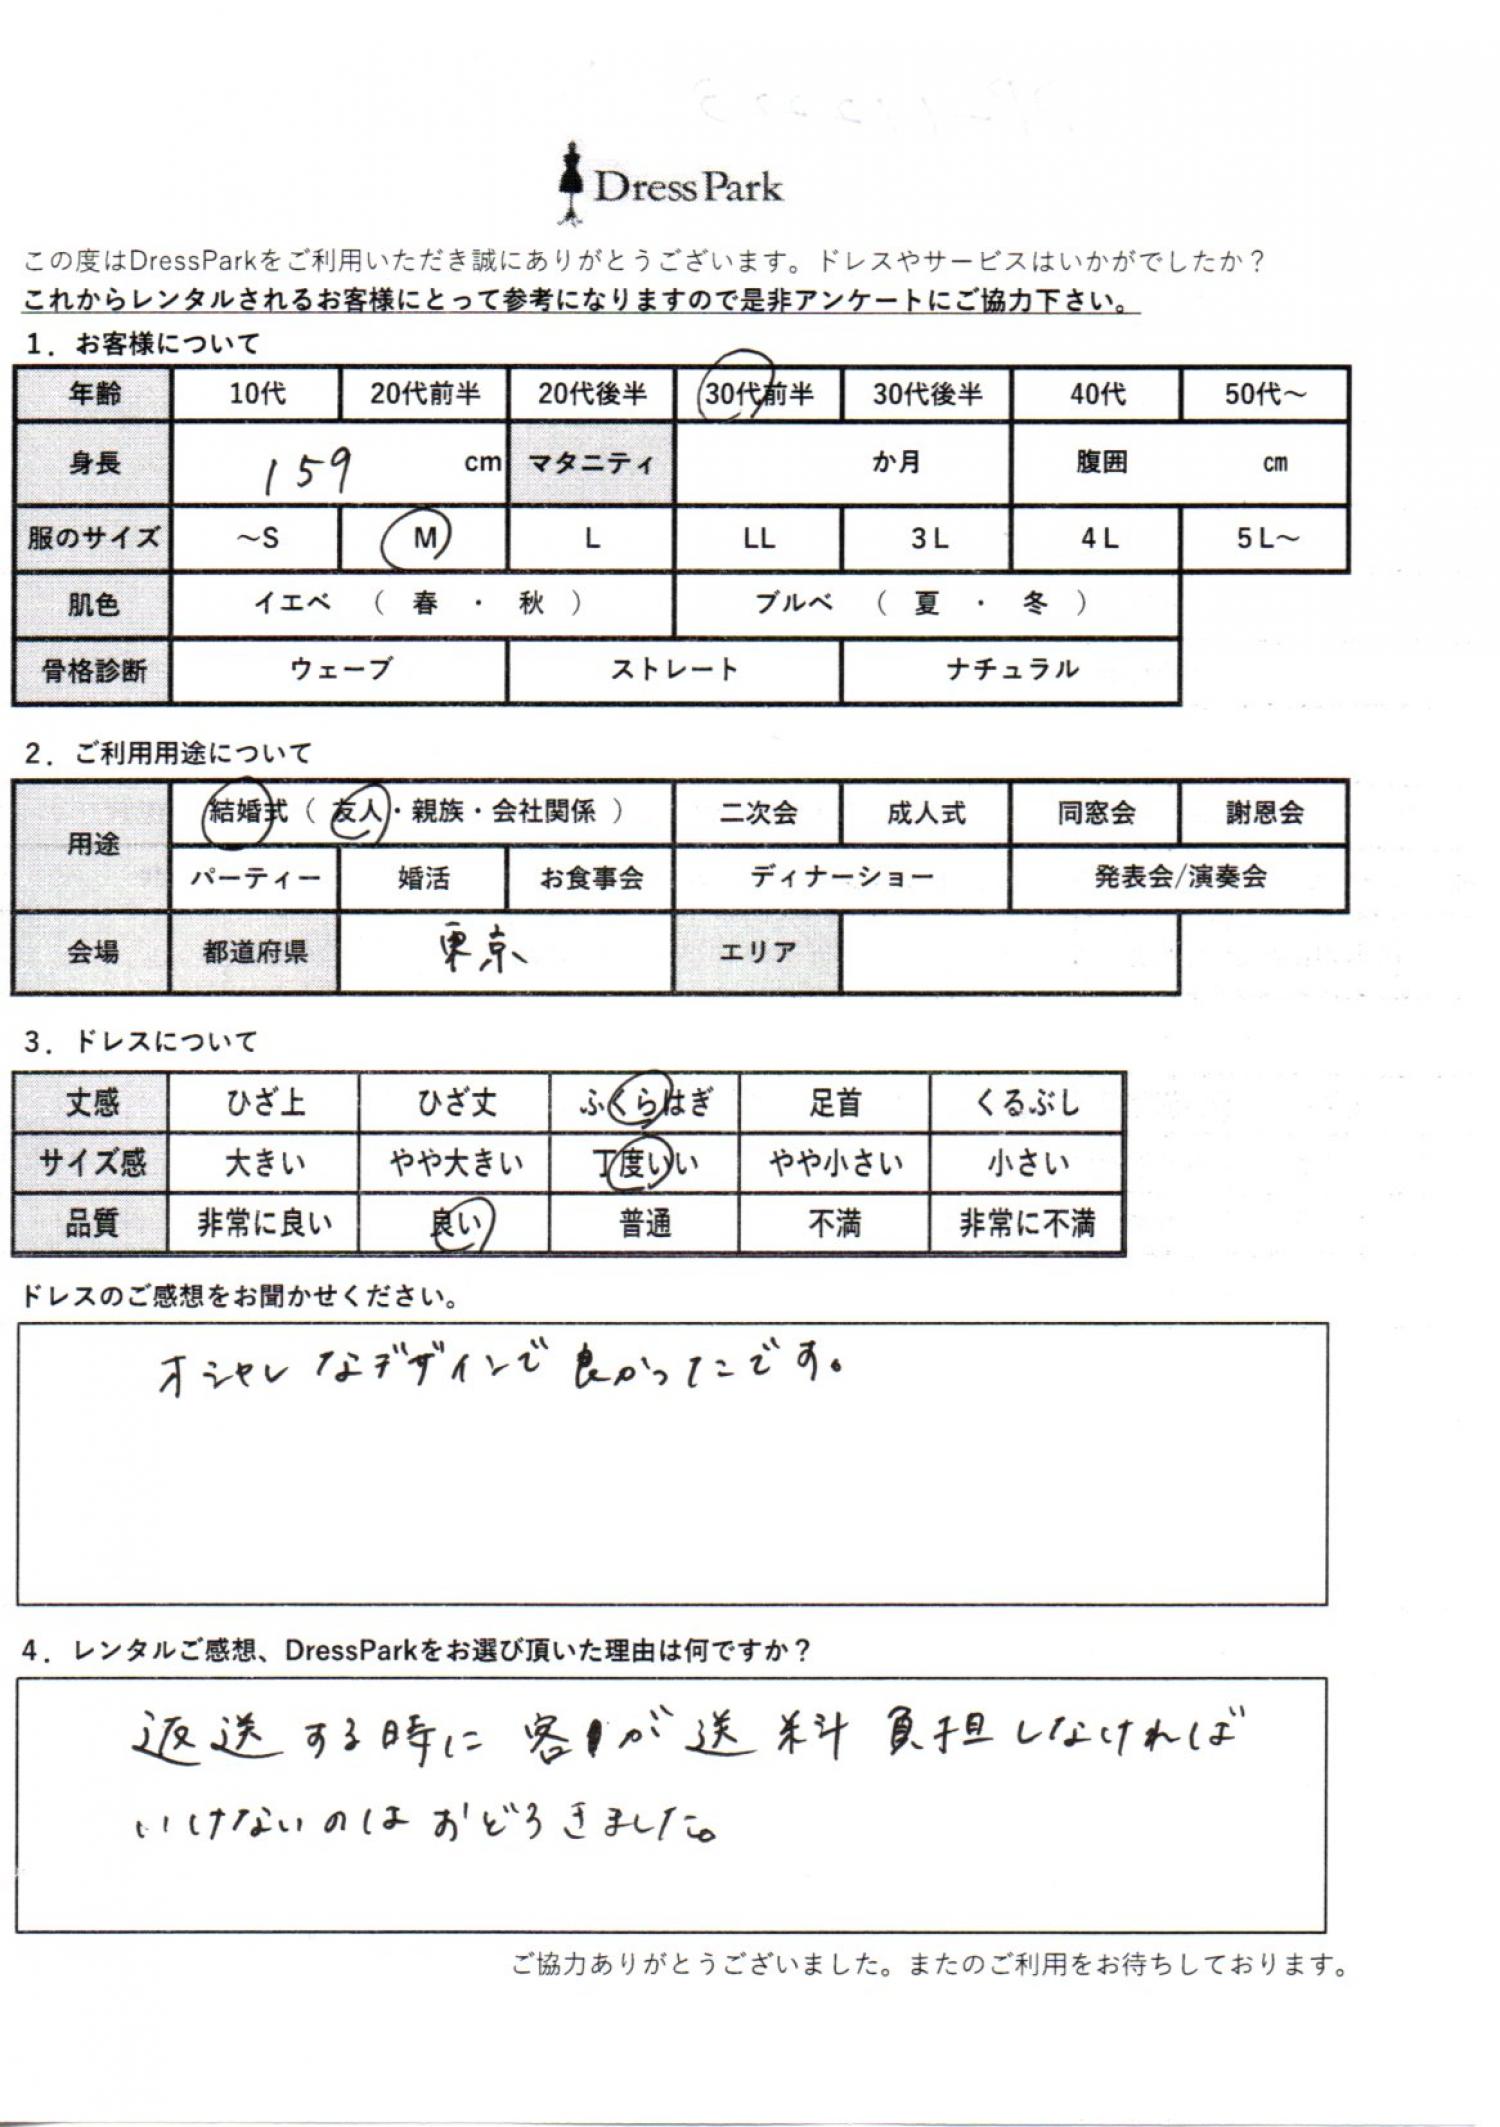 DressPark
この度はDressParkをご利用いただき誠にありがとうございます。ドレスやサービスはいかがでしたか？
これからレンタルされるお客様にとって参考になりますので是非アンケートにご協力下さい。
1．お客様について
年齢 10代 20代前半 20代後半 30代前半 30代後半 40代 50代～
身長 159 cm マタニティ か月 腹囲 ㎝
服のサイズ ～S M L LL 3L 4L 5L～
肌色 イエベ （ 春 ・ 秋 ） ブルベ （ 夏 ・ 冬 ）
骨格診断 ウェーブ ストレート ナチュラル
2．ご利用用途について
用途 結婚式（ 友人・親族・会社関係 ） 二次会 成人式 同窓会 謝恩会
パーティー 婚活 お食事会 ディナーショー 発表会/演奏会
会場 都道府県 東京 エリア
3．ドレスについて
丈感 ひざ上 ひざ丈 ふくらはぎ 足首 くるぶし
サイズ感 大きい やや大きい 丁度いい やや小さい 小さい
品質 非常に良い 良い 普通 不満 非常に不満
ドレスのご感想をお聞かせください。
オシャレなデザインで良かったです。
4．レンタルご感想、DressParkをお選び頂いた理由は何ですか？
返送する時に客が送料負担しなければ
いけないのはおどろきました。
ご協力ありがとうございました。またのご利用をお待ちしております。